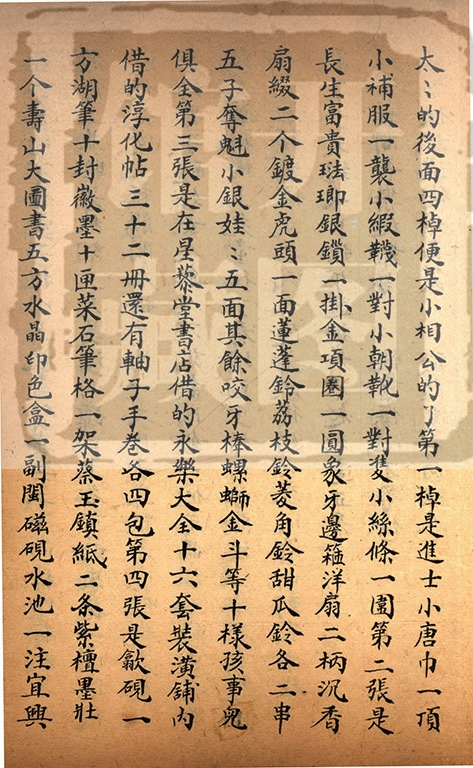 太〻的後面四棹便是小相公的了第一棹是進士小唐巾一頂
小補服一襲小緞韈一對小朝靴一對䨇小絲絛一圍第二張是
長生富貴琺瑯銀鎖一掛金項圈一圓象牙邊箍洋扇二柄沉香
扇綴二个鍍金虎頭一面蓮蓬鈴荔枝鈴菱角鈴甜瓜鈴各二串
五子奪魁小銀娃〻五面其餘咬牙棒螺螄金斗等十樣孩事皃
俱全第三張是在星藜堂書店借的永樂大全十六套裝潢鋪內
借的淳化帖三十二冊還有軸子手巻各四包第四張是歙硯一
方湖筆十封徽墨十匣菜石筆格一架蔡玉鎮紙二条紫檀墨壯
一个壽山大圖書五方水晶印色盒一副閩磁硯水池一注宜興